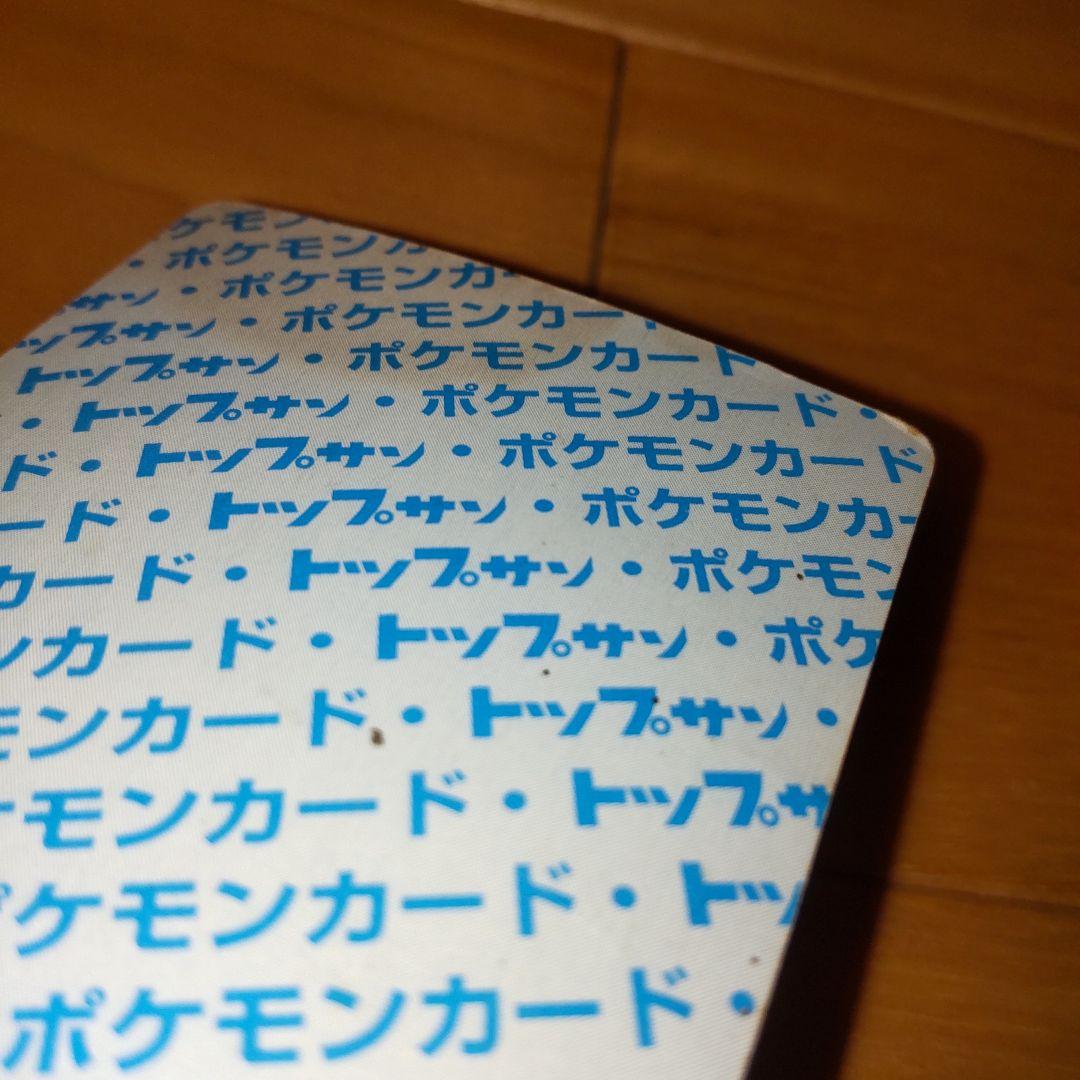 ケモン
・ポケモンカ
サン・ポケモンカー
トップサン・ポケモンカード
トップサン・ポケモンカード
・トップサン・ポケモンカード・
ド・トップサン・ポケモンカード
ード・トップサン・ポケモンカー
カード・トップサン・ポケモン
ンカード・トップサン・ポケ
モンカード・トップサン・
ケモンカード・トップサ
ポケモンカード・トッ
ポケモンカード・